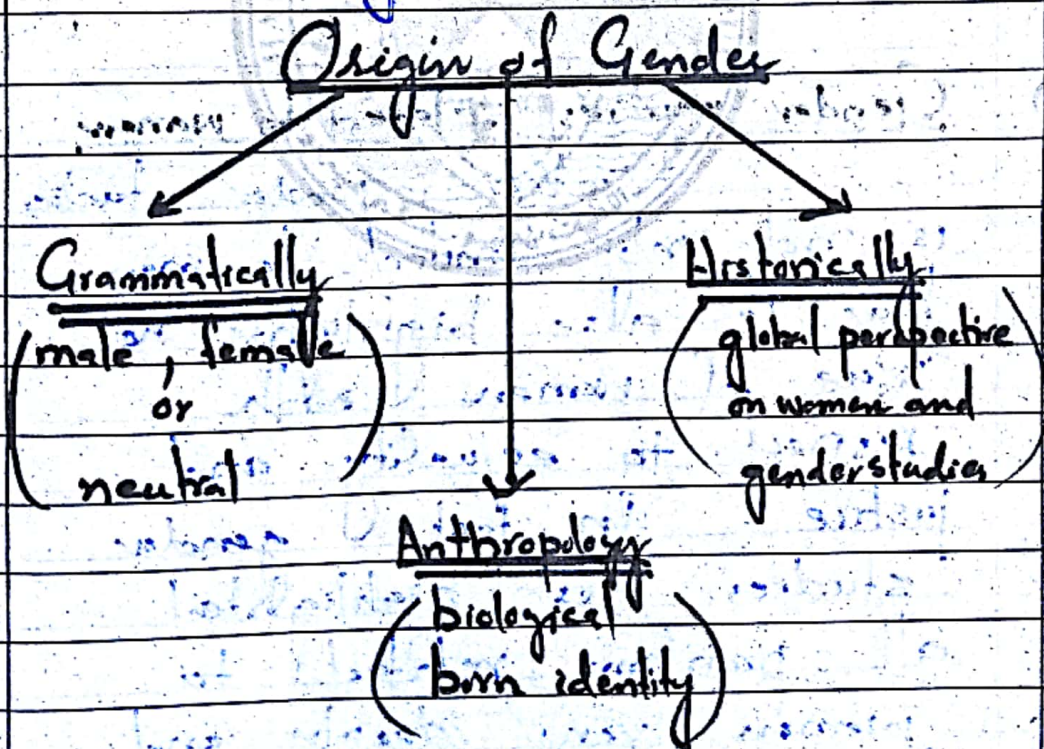 Origin of Gender
Grammatically
(male, female
or
neutral)
Historically
(global perspective
on women and
gender studies)
Anthropology
(biological
born identity)